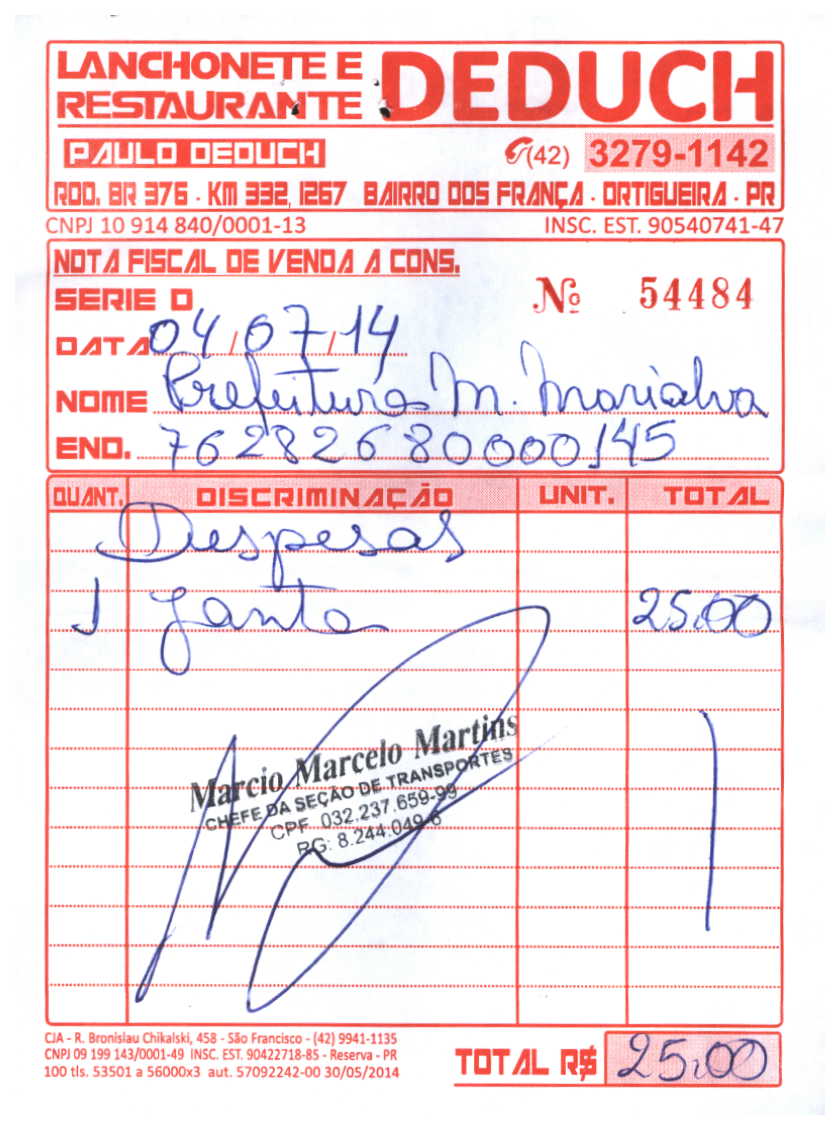 LANCHONETE E
RESTAURANTE DEDUCH
PAULO DEDUCH (42) 3279-1142
ROD. BR 376 - KM 332, 1267 BAIRRO DOS FRANÇA - ORTIGUEIRA - PR
CNPJ 10 914 840/0001-13 INSC. EST. 90540741-47
NOTA FISCAL DE VENDA A CONS.
SERIE D Nº 54484
DATA 04/07/14
NOME Prefeitura M. Marialva
END. 76282680000145
QUANT. DISCRIMINAÇÃO UNIT. TOTAL
Despesas
1 Janta 25,00
Marcio Marcelo Martins
CHEFE DA SEÇÃO DE TRANSPORTES
CPF 032.237.659-99
RG: 8.244.049-6
CJA - R. Bronislau Chikalski, 458 - São Francisco - (42) 9941-1135
CNPJ 09 199 143/0001-49 INSC. EST. 90422718-85 - Reserva - PR
100 tls. 53501 a 56000x3 aut. 57092242-00 30/05/2014
TOTAL R$ 25,00